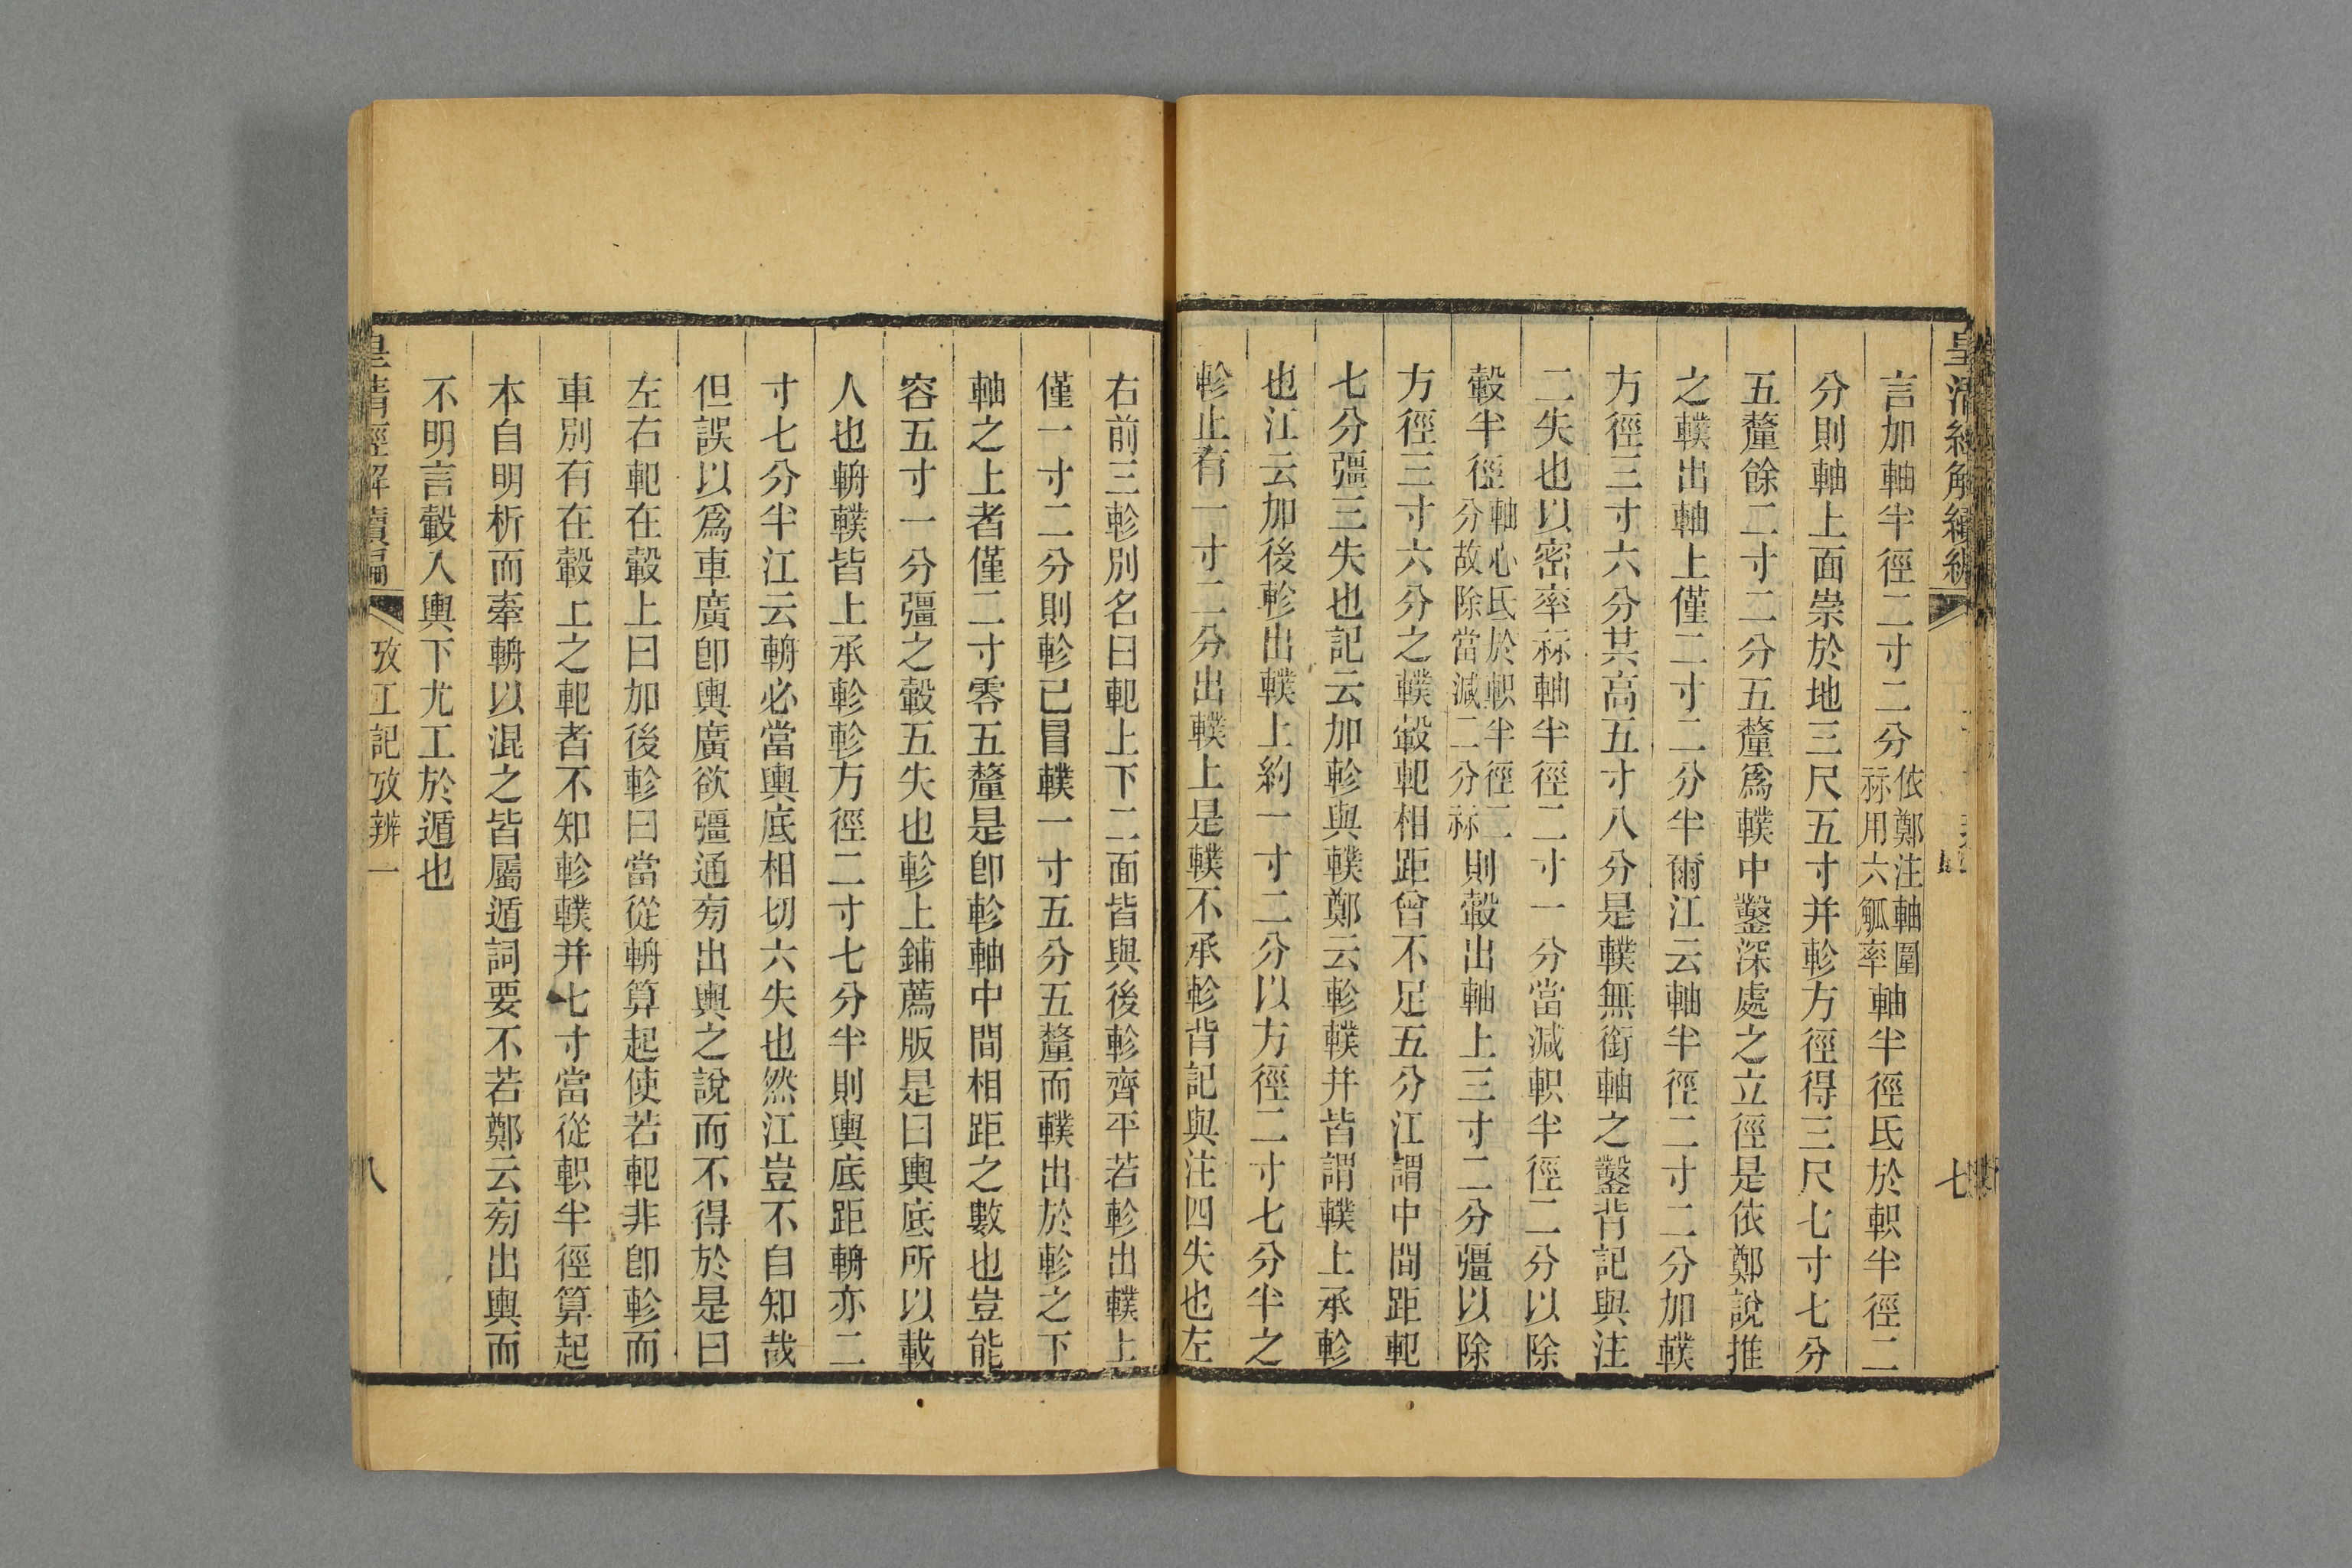 言加軸半徑二寸二分依鄭注軸圍𥘿用六觚率軸半徑氐於軹半徑二
分則軸上面崇於地三尺五寸并軫方徑得三尺七寸七分
五釐餘二寸二分五釐爲轐中鑿深處之立徑是依鄭說推
之轐出軸上僅二寸二分半爾江云軸半徑二寸二分加轐
方徑三寸六分其高五寸八分是轐無銜軸之鑿背記與注
二失也以密率𥘿軸半徑二寸一分當減軹半徑二分以除
轂半徑軸心氐於軹半徑二分故除當減二分𥘿則轂出軸上三寸二分彊以除
方徑三寸六分之轐轂軓相距曾不足五分江謂中間距軓
七分彊三失也記云加軫與轐鄭云軫轐并皆謂轐上承軫
也江云加後軫出轐上約一寸二分以方徑二寸七分半之
軫止有一寸二分出轐上是轐不承軫背記與注四失也左
七
右前三軫別名曰軓上下二面皆與後軫齊平若軫出轐上
僅一寸二分則軫已冒轐一寸五分五釐而轐出於軫之下
軸之上者僅二寸零五釐是卽軫軸中間相距之數也豈能
容五寸一分彊之轂五失也軫上鋪薦版是曰輿底所以載
人也輈轐皆上承軫軫方徑二寸七分半則輿底距輈亦二
寸七分半江云輈必當輿底相切六失也然江豈不自知哉
但誤以爲車廣卽輿廣欲彊通㫄出輿之說而不得於是曰
左右軓在轂上曰加後軫曰當從輈算起使若軓非卽軫而
車別有在轂上之軓者不知軫轐并七寸當從軹半徑算起
本自明析而牽輈以混之皆屬遁詞要不若鄭云㫄出輿而
不明言轂入輿下尤工於遁也
皇清經解續編
攷工記攷辨一
八